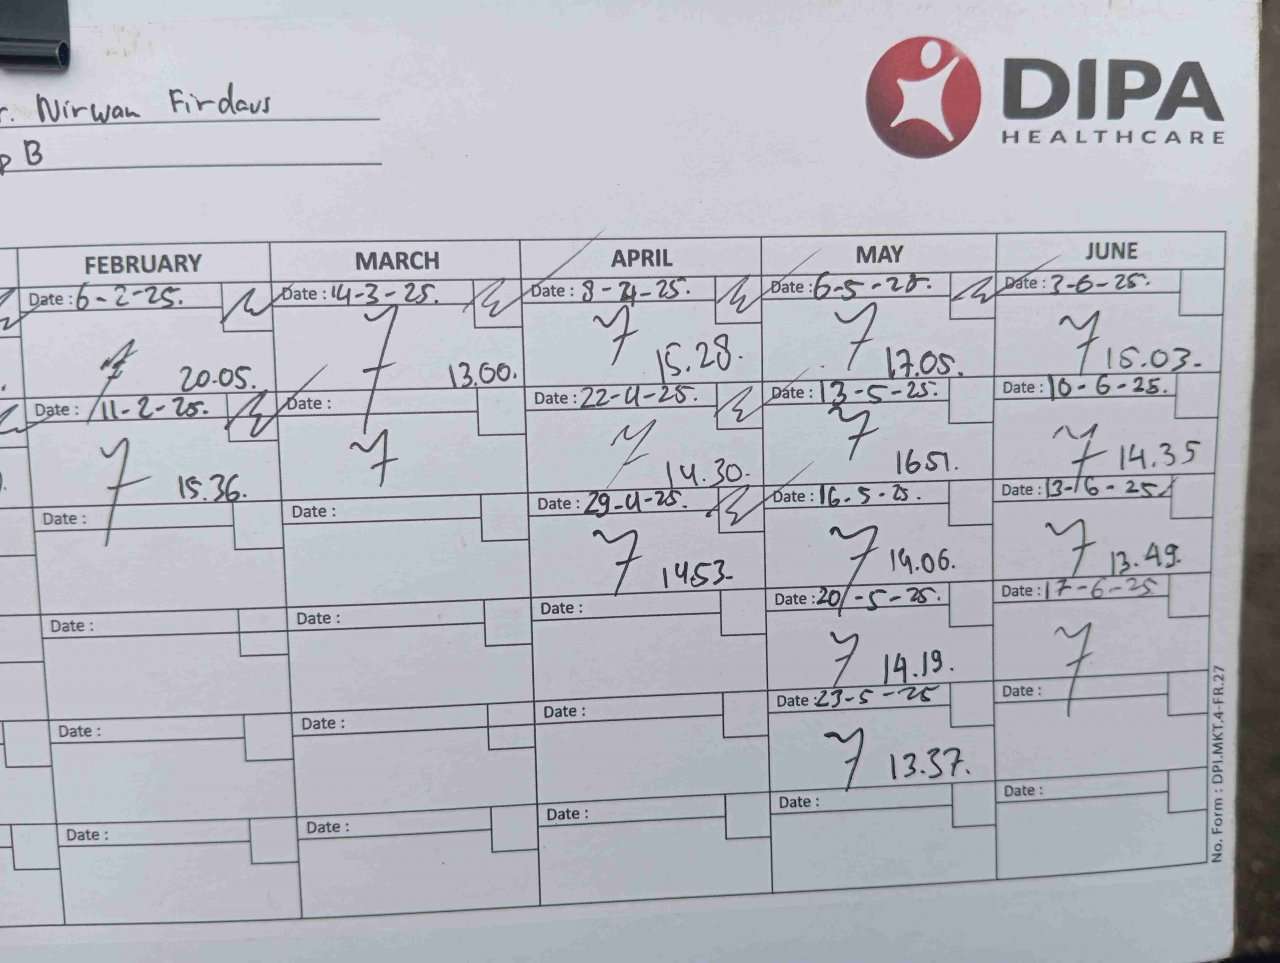 DIPA
HEALTHCARE
r. Nirwan Firdaus
p B
FEBRUARY MARCH APRIL MAY JUNE
Date : 6-2-25. Date : 14-3-25. Date : 8-4-25. Date : 6-5-25. Date : 3-6-25.
20.05. 13.00. 15.28. 17.05. 15.03.
Date : 11-2-25. Date : Date : 22-4-25. Date : 13-5-25. Date : 10-6-25.
15.36. 14.30. 1651. 14.35
Date : Date : Date : 29-4-25. Date : 16-5-25. Date : 13-6-25
1453. 14.06. 13.49.
Date : Date : Date : Date : 20-5-25. Date : 17-6-25
14.19.
Date : Date : Date : Date : 23-5-25 Date :
13.37.
Date : Date : Date : Date : Date :
No. Form : DPI.MKT.4-FR.27